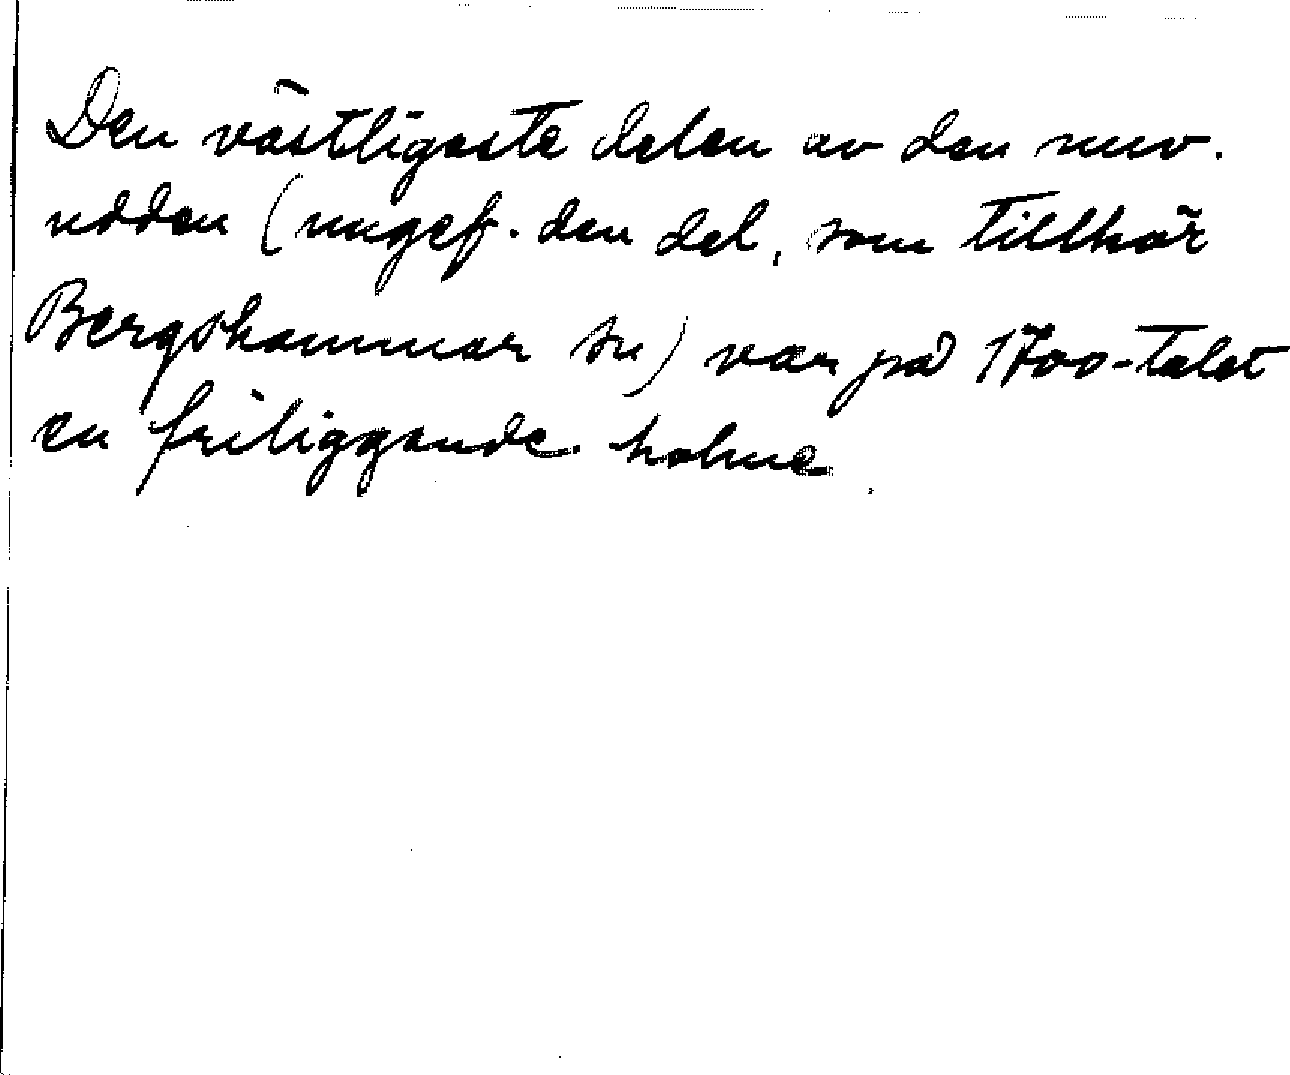 Den västligaste delen av den nuv.
udden (ungef. den del, som tillhör
Bergshammar sn) var på 1700-talet
en friliggande holme.